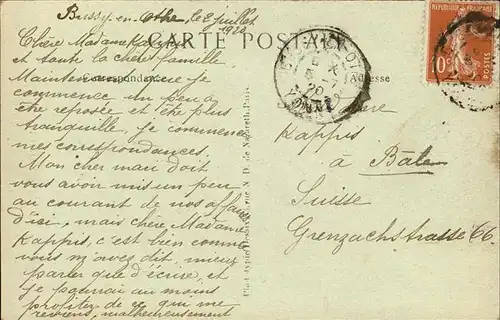 Bussy-en-Othe, le 2 juillet
1920
CARTE POSTALE
Correspondance
Adresse
Chère Madame Kappis
et toute la chère famille
Maintenant que je
commence un peu à
être reposée et être plus
tranquille, je commence
mes correspondances.
Mon cher mari doit
vous avoir mis un peu
au courant de nos affaires
d'ici, mais chère Madame
Kappis, c'est bien comme
vous m'avez dit, mieux
parler que d'écrire, et
je pourrai au moins
profiter de ce qui me
reviens, malheureusement
Kappis
à Bâle
Suisse
Grenzachstrasse 66
REPUBLIQUE FRANÇAISE
10c
POSTES
rue N. D. de Nazareth, Paris